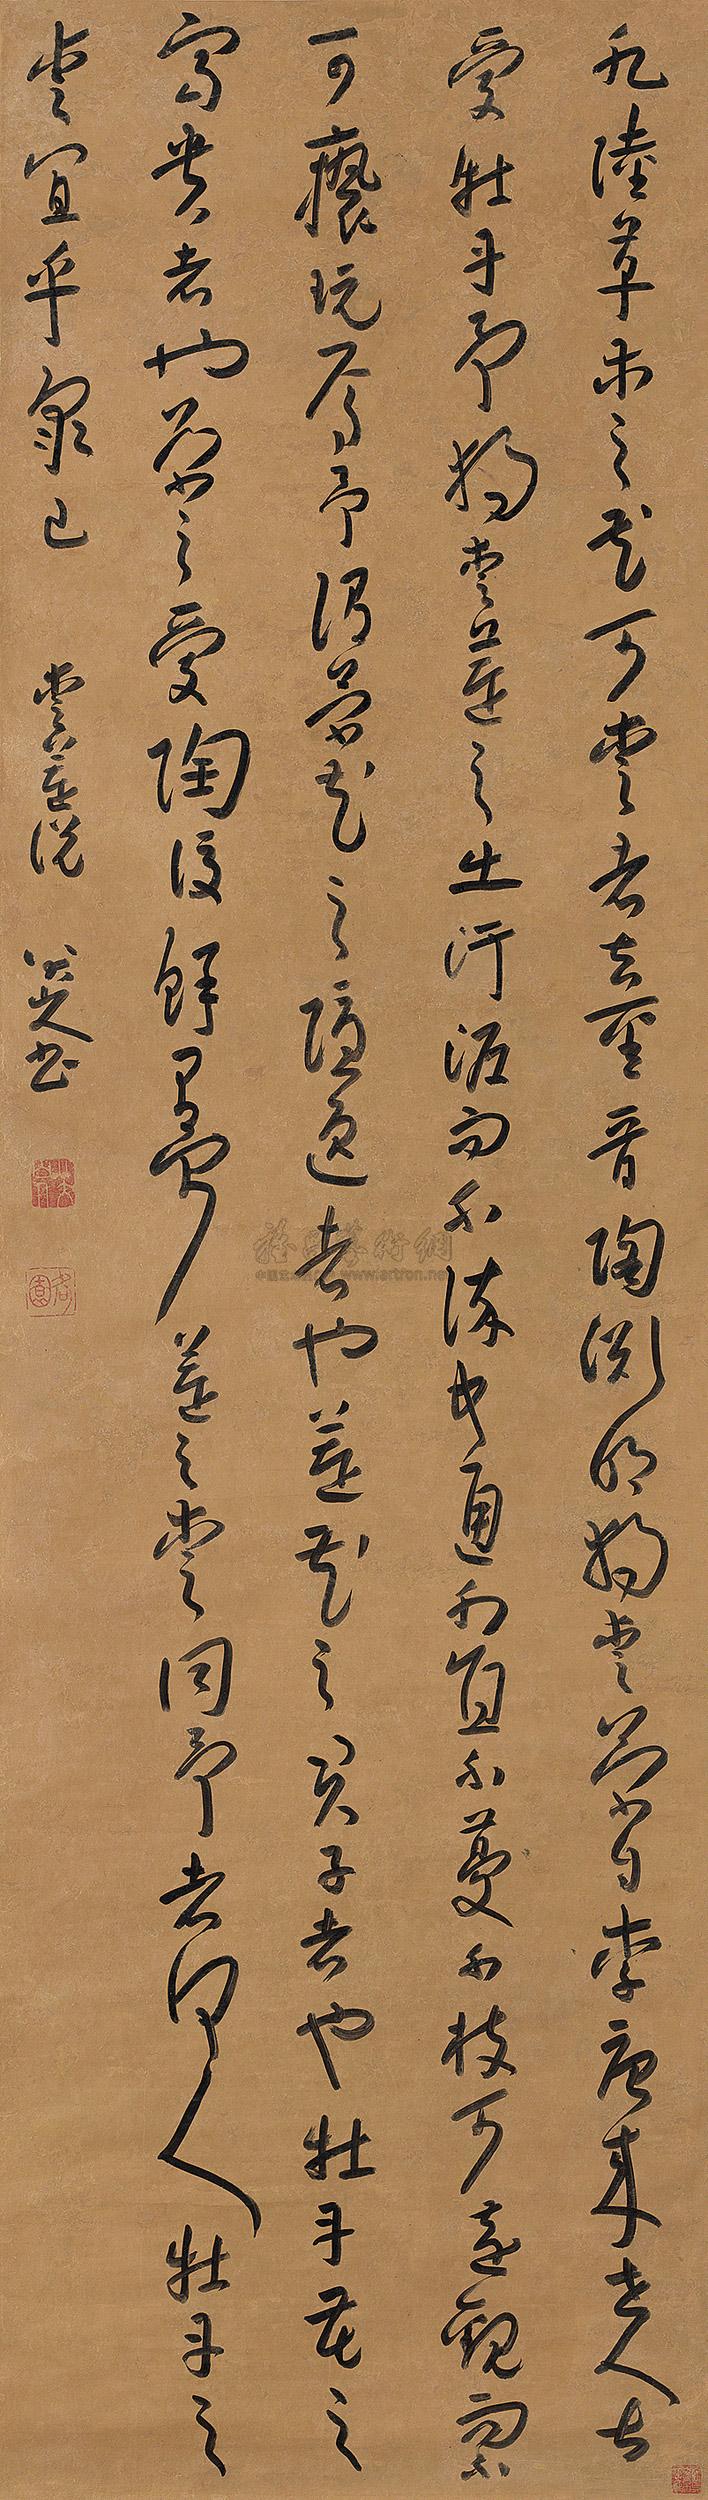 凡陸草木之花可愛者甚蕃晉陶淵明獨愛菊自李唐來世人甚
愛牡丹予獨愛蓮之出汙泥而不染中通外直不蔓不枝可遠觀而不
可褻玩焉予謂菊花之隱逸者也蓮花之君子者也牡丹花之
富貴者也菊之愛陶後鮮有聞蓮之愛同予者何人牡丹之
愛宜乎衆已 愛蓮說 八大山人書